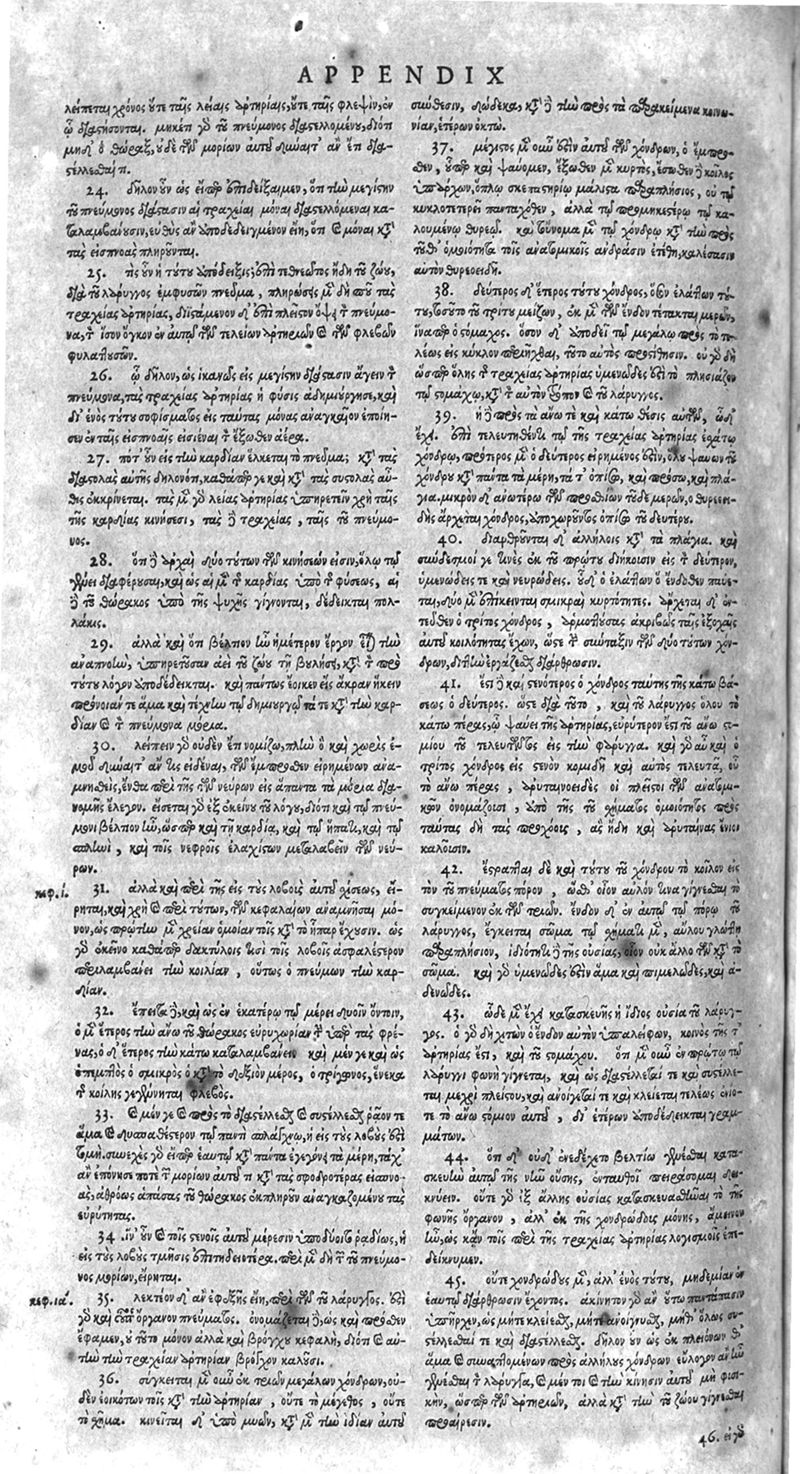 APPENDIX
λείπεται χρόνος οὔτε ταῖς λείαις ἀρτηρίαις, οὔτε ταῖς φλεψὶν, ἐν
ᾧ διαστήσονται. μηκέτι γὰρ τοῦ πνεύμονος διαστελλομένου, διότι
μηδ' ὁ θώραξ, οὐδὲ τῶν μορίων αὐτοῦ δύναιτ' ἂν ἔτι δια-
στέλλεσθαί τι.
24. δῆλον οὖν ὡς εἴπερ ἐπιδείξαιμεν, ὅτι τὴν μεγίστην
τοῦ πνεύμονος διάστασιν αἱ τραχεῖαι μόναι διαστελλόμεναι κα-
ταλαμβάνουσιν, εὐθὺς ἂν ἀποδεδειγμένον εἴη, ὅτι καὶ μόναι κατὰ
τὰς εἰσπνοὰς πληροῦνται.
25. τίς οὖν ἡ τούτου ἀπόδειξις; ἐπὶ τεθνεῶτος ἤδη τοῦ ζώου,
διὰ τοῦ λάρυγγος ἐμφυσῶν πνεῦμα, πληρώσεις μὲν δήπου τὰς
τραχείας ἀρτηρίας, διιστάμενον δ' ἐπὶ πλεῖστον ὄψει τὸν πνεύμο-
να, τὸν ἴσον ὄγκον ἐν αὐτῷ τῶν λείων ἀρτηριῶν καὶ τῶν φλεβῶν
φυλαττουσῶν.
26. ᾧ δῆλον, ὡς ἱκανῶς εἰς μεγίστην διάστασιν ἄγειν τὸν
πνεύμονα, τὰς τραχείας ἀρτηρίας ἡ φύσις ἐδημιούργησε, καὶ
δι' ἑνὸς τούτου σοφίσματος εἰς ταύτας μόνας ἀναγκαῖον ἐποίη-
σεν ἐν ταῖς εἰσπνοαῖς εἰσιέναι τὸν ἔξωθεν ἀέρα.
27. πότ' οὖν εἰς τὴν καρδίαν ἕλκεται τὸ πνεῦμα; κατὰ τὰς
διαστολὰς αὐτῆς δηλονότι, καθάπερ γε καὶ κατὰ τὰς συστολὰς αὖ-
θις ἐκκρίνεται. τὰς μὲν γὰρ λείας ἀρτηρίας ὑπηρετεῖν χρὴ ταῖς
τῆς καρδίας κινήσεσι, τὰς δὲ τραχείας, ταῖς τοῦ πνεύμο-
νος.
28. ὅτι δὲ ἀρχαὶ δύο τούτων τῶν κινήσεών εἰσιν, ὅλῳ τῷ
γένει διαφέρουσαι, καὶ ὡς αἱ μὲν τῆς καρδίας ὑπὸ τῆς φύσεως, αἱ
δὲ τοῦ θώρακος ὑπὸ τῆς ψυχῆς γίγνονται, δέδεικται πολ-
λάκις.
29. ἀλλὰ καὶ ὅτι βέλτιον ἦν ἡμέτερον ἔργον εἶναι τὴν
ἀναπνοὴν, ὑπηρετοῦσαν ἀεὶ τοῦ ζώου τῇ βουλήσει, κατὰ τὸν πρὸ
τούτου λόγον ἀποδέδεικται. καὶ πάντως ἔοικεν εἰς ἄκραν ἥκειν
πρόνοιάν τε ἅμα καὶ τέχνην τῷ δημιουργῷ τά τε κατὰ τὴν καρ-
δίαν καὶ τὸν πνεύμονα μόρια.
30. λείπειν γὰρ οὐδὲν ἔτι νομίζω, πλὴν ὃ καὶ χωρὶς ἐ-
μοῦ δύναιτ' ἄν τις εἰδέναι, τῶν ἔμπροσθεν εἰρημένων ἀνα-
μνησθεὶς, ἔνθα περὶ τῆς τῶν νεύρων εἰς ἅπαντα τὰ μόρια δια-
νομῆς ἔλεγον. εἴσεται γὰρ ἐξ ἐκείνου τοῦ λόγου, διότι καὶ τῷ πνεύ-
μονι βέλτιον ἦν, ὥσπερ καὶ τῇ καρδίᾳ, καὶ τῷ ἥπατι, καὶ τῷ
σπληνὶ, καὶ τοῖς νεφροῖς ἐλαχίστων μεταλαβεῖν τῶν νεύ-
ρων.
κεφ. ί.
31. ἀλλὰ καὶ περὶ τῆς εἰς τοὺς λοβοὺς αὐτοῦ σχίσεως, εἴ-
ρηται, καὶ χρὴ καὶ περὶ τούτων, τῶν κεφαλαίων ἀναμνῆσαι μό-
νον, ὡς πρώτην μὲν χρείαν ὁμοίαν τοῖς κατὰ τὸ ἧπαρ ἔχουσιν. ὡς
γὰρ ἐκεῖνο καθάπερ δακτύλοις τισὶ τοῖς λοβοῖς ἀσφαλέστερον
περιλαμβάνει τὴν κοιλίαν, οὕτως ὁ πνεύμων τὴν καρ-
δίαν.
32. ἔπειτα δὲ, καὶ ὡς ἐν ἑκατέρῳ τῷ μέρει δυοῖν ὄντοιν,
ὁ μὲν ἕτερος τὴν ἄνω τοῦ θώρακος εὐρυχωρίαν τὴν ὑπὲρ τὰς φρέ-
νας, ὁ δ' ἕτερος τὴν κάτω καταλαμβάνει. καὶ μέν γε καὶ ὡς
ὁ πέμπτος ὁ σμικρὸς ὁ κατὰ τὸ δεξιὸν μέρος, ὁ τρίγωνος, ἕνεκα
τῆς κοίλης γεγένηται φλεβός.
33. καὶ μέν γε καὶ πρὸς τὸ διαστέλλεσθαι καὶ συστέλλεσθαι ῥᾷόν τε
ἅμα καὶ δυσπαθέστερον τῷ παντὶ σπλάγχνῳ, ἡ εἰς τοὺς λοβοὺς ἐστὶ
τμῆσις. συνεχὲς γὰρ εἴπερ ἑαυτῷ κατὰ πάντα ἐγεγόνει τὰ μέρη, τάχ'
ἂν ἐπόνησέ ποτε τῶν μορίων αὐτοῦ τι κατὰ τὰς σφοδροτέρας εἰσπνο-
ὰς, ἀθρόως ἁπάσας τοῦ θώρακος ἐκπληροῦν ἀναγκαζομένου τὰς
εὐρύτητας.
34. ἵν' οὖν καὶ τοῖς στενοῖς αὐτοῦ μέρεσιν ὑποδύοιτο ῥᾳδίως, ἡ
εἰς τοὺς λοβοὺς τμῆσις ἐπιτηδειοτέρα. περὶ μὲν δὴ τῶν τοῦ πνεύμο-
νος μορίων, εἴρηται.
κεφ. ιά.
35. λεκτέον δ' ἂν ἐφεξῆς εἴη, περὶ τῶν τοῦ λάρυγγος. ἐστὶ
γὰρ καὶ τοῦτο ὄργανον πνεύματος. ὀνομάζεται δὲ, ὡς καὶ πρόσθεν
ἔφαμεν, οὐ τοῦτο μόνον ἀλλὰ καὶ βρόγχου κεφαλὴ, διότι καὶ αὐ-
τὴν τὴν τραχεῖαν ἀρτηρίαν βρόγχον καλοῦσι.
36. σύγκειται μὲν οὖν ἐκ τριῶν μεγάλων χόνδρων, οὐ-
δὲν ἐοικότων τοῖς κατὰ τὴν ἀρτηρίαν, οὔτε τὸ μέγεθος, οὔτε
τὸ σχῆμα. κινεῖται δ' ὑπὸ μυῶν, κατὰ μὲν τὴν ἰδίαν αὐτοῦ
σύνθεσιν, δώδεκα, κατὰ δὲ τὴν πρὸς τὰ παρακείμενα κοινω-
νίαν, ἑτέρων ὀκτώ.
37. μέγιστος μὲν οὖν ἐστὶν αὐτοῦ τῶν χόνδρων, ὁ ἔμπρο-
σθεν, οὗπερ καὶ ψαύομεν, ἔξωθεν μὲν κυρτὸς, ἔσωθεν δὲ κοῖλος
ὑπάρχων, ὅπλῳ σκεπαστηρίῳ μάλιστα παραπλήσιος, οὐ τῷ
κυκλοτερεῖ πανταχόθεν, ἀλλὰ τῷ προμηκεστέρῳ τῷ κα-
λουμένῳ θυρεῷ. καὶ τοὔνομα μὲν τῷ χόνδρῳ κατὰ τὴν πρὸς
τοῦθ' ὁμοιότητα τοῖς ἀνατομικοῖς ἀνδράσιν ἐτέθη, καλέσασιν
αὐτὸν θυρεοειδῆ.
38. δεύτερος δ' ἕτερος τούτου χόνδρος, ὅσον ἐλάττων τού-
του, τοσοῦτο τοῦ τρίτου μείζων, ἐκ μὲν τῶν ἔνδον τέτακται μερῶν,
ἵνα περ ὁ στόμαχος. ὅσον δ' ἀποδεῖ τῷ μεγάλῳ πρὸς τὸ τε-
λέως εἰς κύκλον περιῆχθαι, τοῦτο αὐτὸς προστίθησιν. οὐ γὰρ δὴ
ὥσπερ ὅλης τῆς τραχείας ἀρτηρίας ὑμενῶδες ἐστὶ τὸ πλησιάζον
τῷ στομάχῳ, κατὰ τὸν αὐτὸν τρόπον καὶ τοῦ λάρυγγος.
39. ἡ δὲ πρὸς τὰ ἄνω τε καὶ κάτω θέσις αὐτῶν, ὧδ'
ἔχει. ἐπὶ τελευτήσαντι τῷ τῆς τραχείας ἀρτηρίας ἐσχάτῳ
χόνδρῳ, πρότερος μὲν ὁ δεύτερος εἰρημένος ἐστὶν, ὅλου ψαύων τοῦ
χόνδρου κατὰ πάντα τὰ μέρη, τά τ' ὀπίσω, καὶ πρόσω, καὶ πλά-
για. μικρὸν δ' ἀνωτέρω τῶν προσθίων τοῦδε μερῶν, ὁ θυρεοει-
δὴς ἄρχεται χόνδρος, ὑποχωροῦντος ὀπίσω τοῦ δευτέρου.
40. διαρθροῦνται δ' ἀλλήλοις κατὰ τὰ πλάγια. καὶ
σύνδεσμοί γέ τινες ἐκ τοῦ πρώτου διήκουσιν εἰς τὸν δεύτερον,
ὑμενώδεις τε καὶ νευρώδεις. οὗ δ' ὁ ἐλάττων ὁ ἔνδοθεν παύε-
ται, δύο μὲν ἐπίκεινται σμικραὶ κυρτότητες. ἄρχεται δ' ἐν-
τεῦθεν ὁ τρίτος χόνδρος, ἁρμοττούσας ἀκριβῶς ταῖς ἐξοχαῖς
αὐτοῦ κοιλότητας ἔχων, ὥστε τὴν σύνταξιν τῶν δύο τούτων χόν-
δρων, διττὴν ἐργάζεσθαι διάρθρωσιν.
41. ἔστι δὲ καὶ στενότερος ὁ χόνδρος ταύτης τῆς κάτω βά-
σεως ὁ δεύτερος. ὥστε διὰ τοῦτο, καὶ τοῦ λάρυγγος ὅλου τὸ
κάτω πέρας, ᾧ ψαύει τῆς ἀρτηρίας, εὐρύτερον ἐστὶ τοῦ ἄνω στο-
μίου τοῦ τελευτῶντος εἰς τὴν φάρυγγα. καὶ γὰρ αὖ καὶ ὁ
τρίτος χόνδρος εἰς στενὸν κομιδῇ καὶ αὐτὸς τελευτᾷ, οὗ
τὸ ἄνω πέρας, ἀρυταινοειδὲς οἱ πλεῖστοι τῶν ἀνατομι-
κῶν ὀνομάζουσι, ἀπὸ τῆς τοῦ σχήματος ὁμοιότητος πρὸς
ταύτας δὴ τὰς προχόους, ἃς ἤδη καὶ ἀρυταίνας ἔνιοι
καλοῦσιν.
42. ἔστραπται δὲ καὶ τούτου τοῦ χόνδρου τὸ κοῖλον εἰς
τὸν τοῦ πνεύματος πόρον, ὥσθ' οἷον αὐλόν τινα γίγνεσθαι τὸ
συγκείμενον ἐκ τῶν τριῶν. ἔνδον δ' ἐν αὐτῷ τῷ πόρῳ τοῦ
λάρυγγος, ἔγκειται σῶμα τῷ σχήματι μὲν, αὐλοῦ γλώττῃ
παραπλήσιον, ἰδιότητι δὲ τῆς οὐσίας, οἷον οὐκ ἄλλο τῶν κατὰ τὸ
σῶμα. καὶ γὰρ ὑμενῶδές ἐστιν ἅμα καὶ πιμελῶδες, καὶ ἀ-
δενῶδες.
43. ὧδε μὲν ἔχει κατασκευῆς ἡ ἴδιος οὐσία τοῦ λάρυγ-
γος. ὁ γὰρ δὴ χιτὼν ὁ ἔνδον αὐτὸν ὑπαλείφων, κοινὸς τῆς τ'
ἀρτηρίας ἐστὶ, καὶ τοῦ στομάχου. ὅτι μὲν οὖν ἐν πρώτῳ τῷ
λάρυγγι φωνὴ γίγνεται, καὶ ὡς διαστέλλεταί τε καὶ συστέλλε-
ται μέχρι πλείστου, καὶ ἀνοίγεταί τε καὶ κλείεται τελέως ἐνίο-
τε τὸ ἄνω στόμιον αὐτοῦ, δι' ἑτέρων ἀποδέδεικται γραμ-
μάτων.
44. ὅτι δ' οὐδ' ἐνεδέχετο βελτίω γενέσθαι κατα-
σκευὴν αὐτοῦ τῆς νῦν οὔσης, ἐνταυθοῖ πειράσομαι δει-
κνύειν. οὔτε γὰρ ἐξ ἄλλης οὐσίας κατασκευασθῆναι τὸ τῆς
φωνῆς ὄργανον, ἀλλ' ἐκ τῆς χονδρώδους μόνης, ἄμεινον
ἦν, ὡς κἀν τοῖς περὶ τῆς τραχείας ἀρτηρίας λογισμοῖς ἐπε-
δείκνυμεν.
45. οὔτε χονδρώδους μὲν, ἀλλ' ἑνὸς τούτου, μηδεμίαν ἐν
ἑαυτῷ διάρθρωσιν ἔχοντος. ἀκίνητον γὰρ ἂν οὕτω παντάπασιν
ὑπῆρχεν, ὡς μήτε κλείεσθαι, μήτε ἀνοίγεσθαι, μήθ' ὅλως συ-
στέλλεσθαί τε καὶ διαστέλλεσθαι. δῆλον οὖν ὡς ἐκ πλειόνων θ'
ἅμα καὶ συναπτομένων πρὸς ἀλλήλους χόνδρων εὔλογον ἂν ἦν
γενέσθαι τὸν λάρυγγα, καὶ μέντοι καὶ τὴν κίνησιν αὐτοῦ μὴ φυσι-
κὴν, ὥσπερ τῶν ἀρτηριῶν, ἀλλὰ κατὰ τὴν τοῦ ζώου γίγνεσθαι
προαίρεσιν.
46. εἰ γὰρ